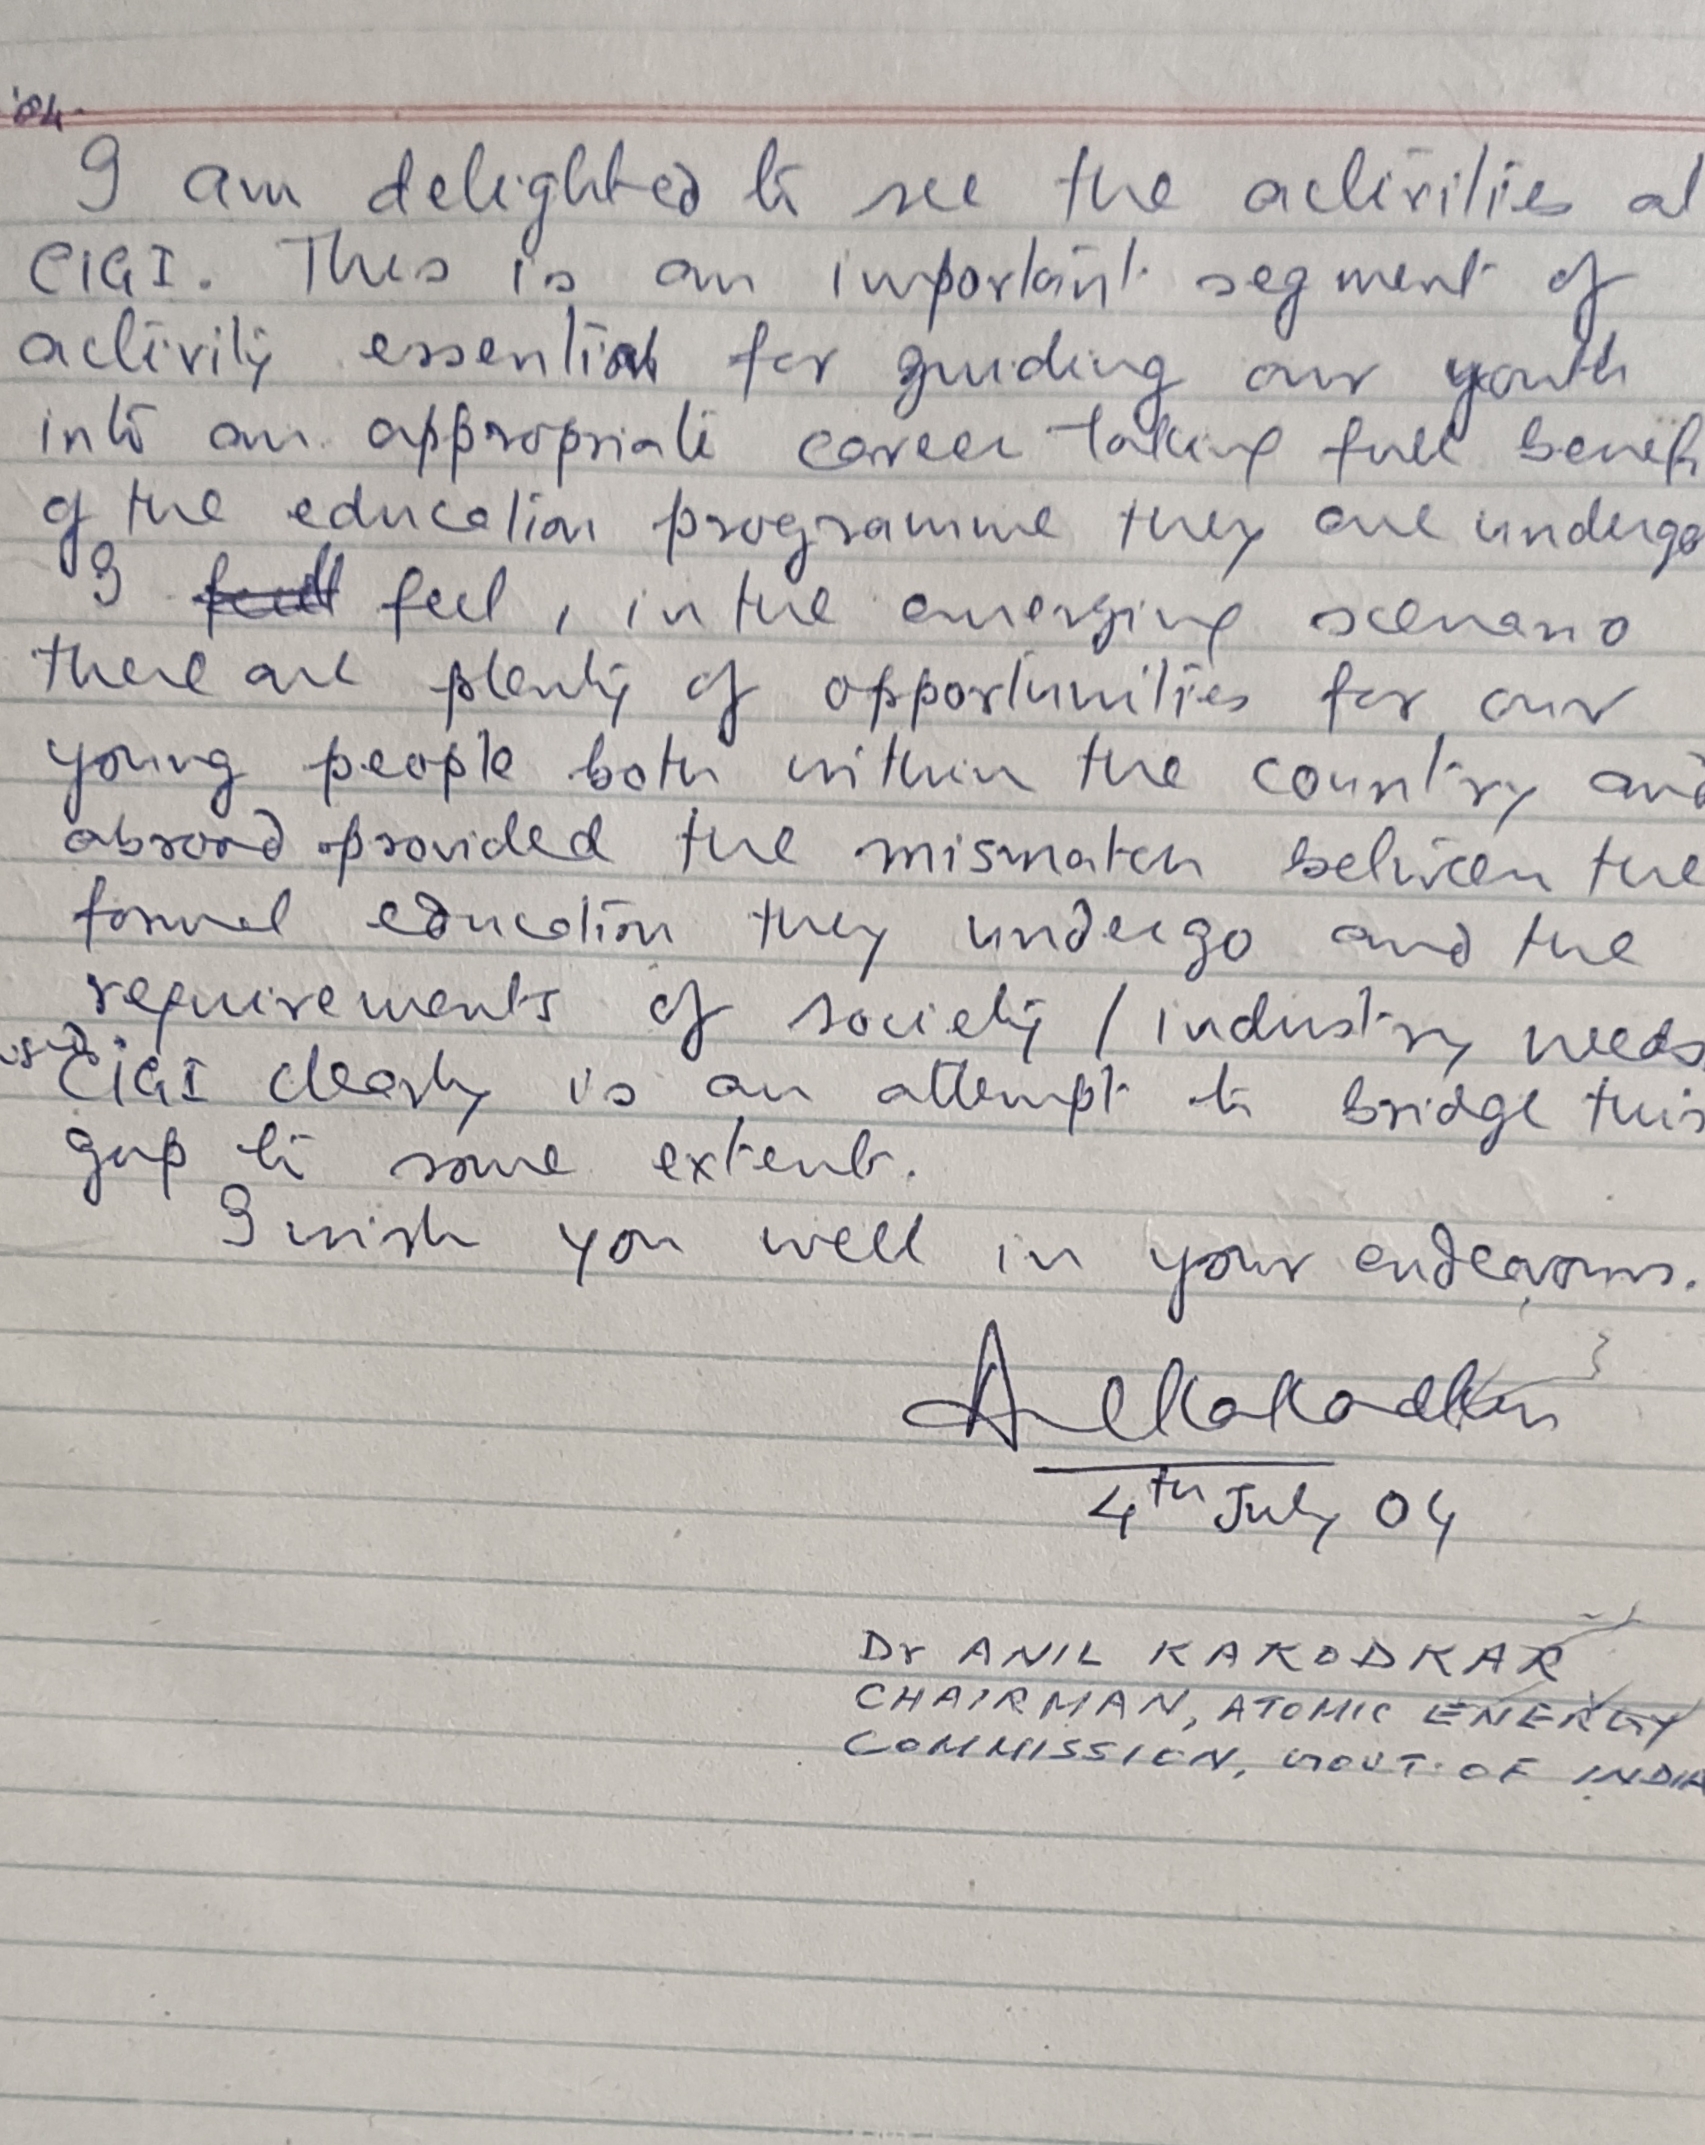 '04.
I am delighted to see the activities at
CIGI. This is an important segment of
activity essential for guiding our youth
into an appropriate career taking full benefi
of the education programme they are undergo
I feel, in the emerging scenario
there are plenty of opportunities for our
young people both within the country and
abroad provided the mismatch between the
formal education they undergo and the
requirements of society / industry needs
CIGI clearly is an attempt to bridge this
gap to some extent.
I wish you well in your endeavours.
Anil Kakodkar
4th July 04
Dr ANIL KAKODKAR
CHAIRMAN, ATOMIC ENERGY
COMMISSION, GOVT. OF INDIA